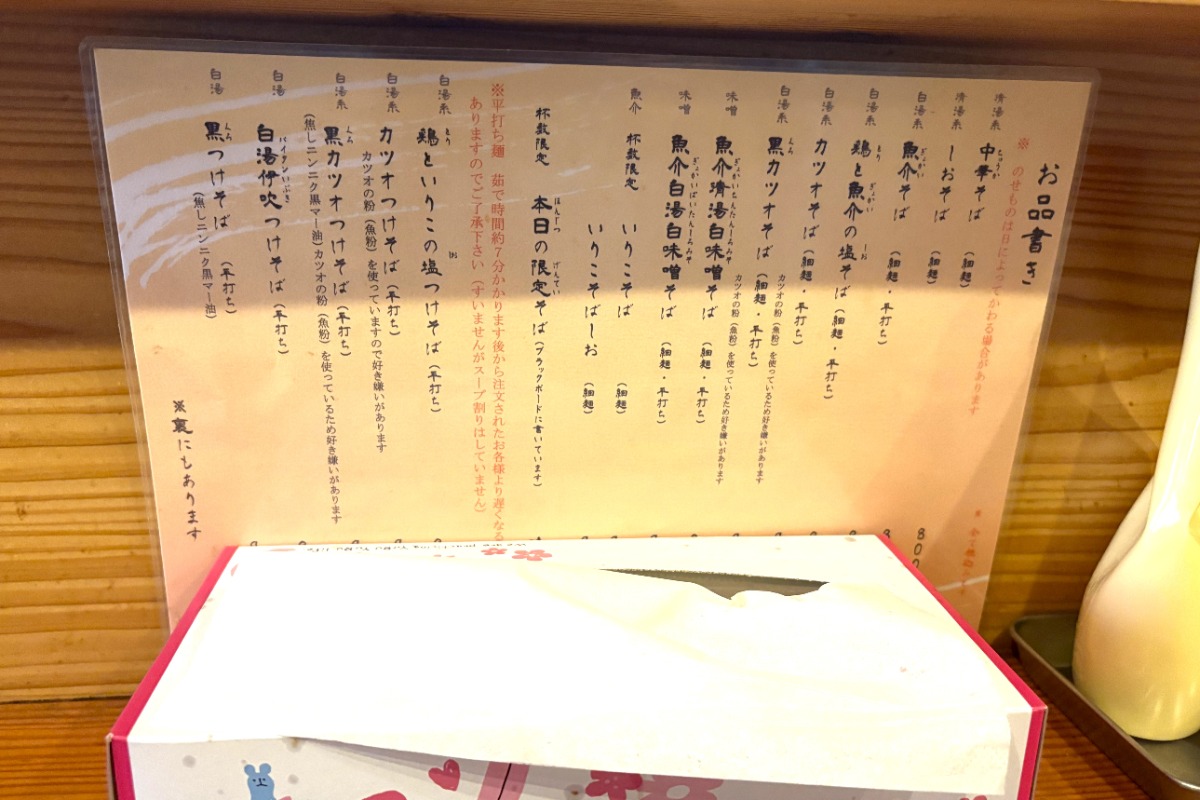 お品書き
※ のせものは日によってかわる場合があります
清湯系 中華そば (細麺) 800
清湯系 しおそば (細麺)
白湯系 魚介そば (細麺・平打ち)
白湯系 鶏と魚介の塩そば (細麺・平打ち)
白湯系 カツオそば (細麺・平打ち)
カツオの粉(魚粉)を使っているため好き嫌いがあります
白湯系 黒カツオそば (細麺・平打ち)
カツオの粉(魚粉)を使っているため好き嫌いがあります
味噌 魚介清湯白味噌そば (細麺・平打ち)
味噌 魚介白湯白味噌そば (細麺・平打ち)
魚介 杯数限定 いりこそば (細麺)
いりこそばしお (細麺)
杯数限定 本日の限定そば (ブラックボードに書いています)
※平打ち麺 茹で時間約7分かかります後から注文されたお客様より遅くなる
ありますのでご了承下さい (すいませんがスープ割りはしていません)
白湯系 鶏といりこの塩つけそば (平打ち)
白湯系 カツオつけそば (平打ち)
カツオの粉(魚粉)を使っていますので好き嫌いがあります
白湯系 黒カツオつけそば (平打ち)
(焦しニンニク黒マー油) カツオの粉(魚粉)を使っているため好き嫌いがあります
白湯 白湯伊吹つけそば (平打ち)
白湯 黒つけそば (平打ち)
(焦しニンニク黒マー油)
※裏にもあります